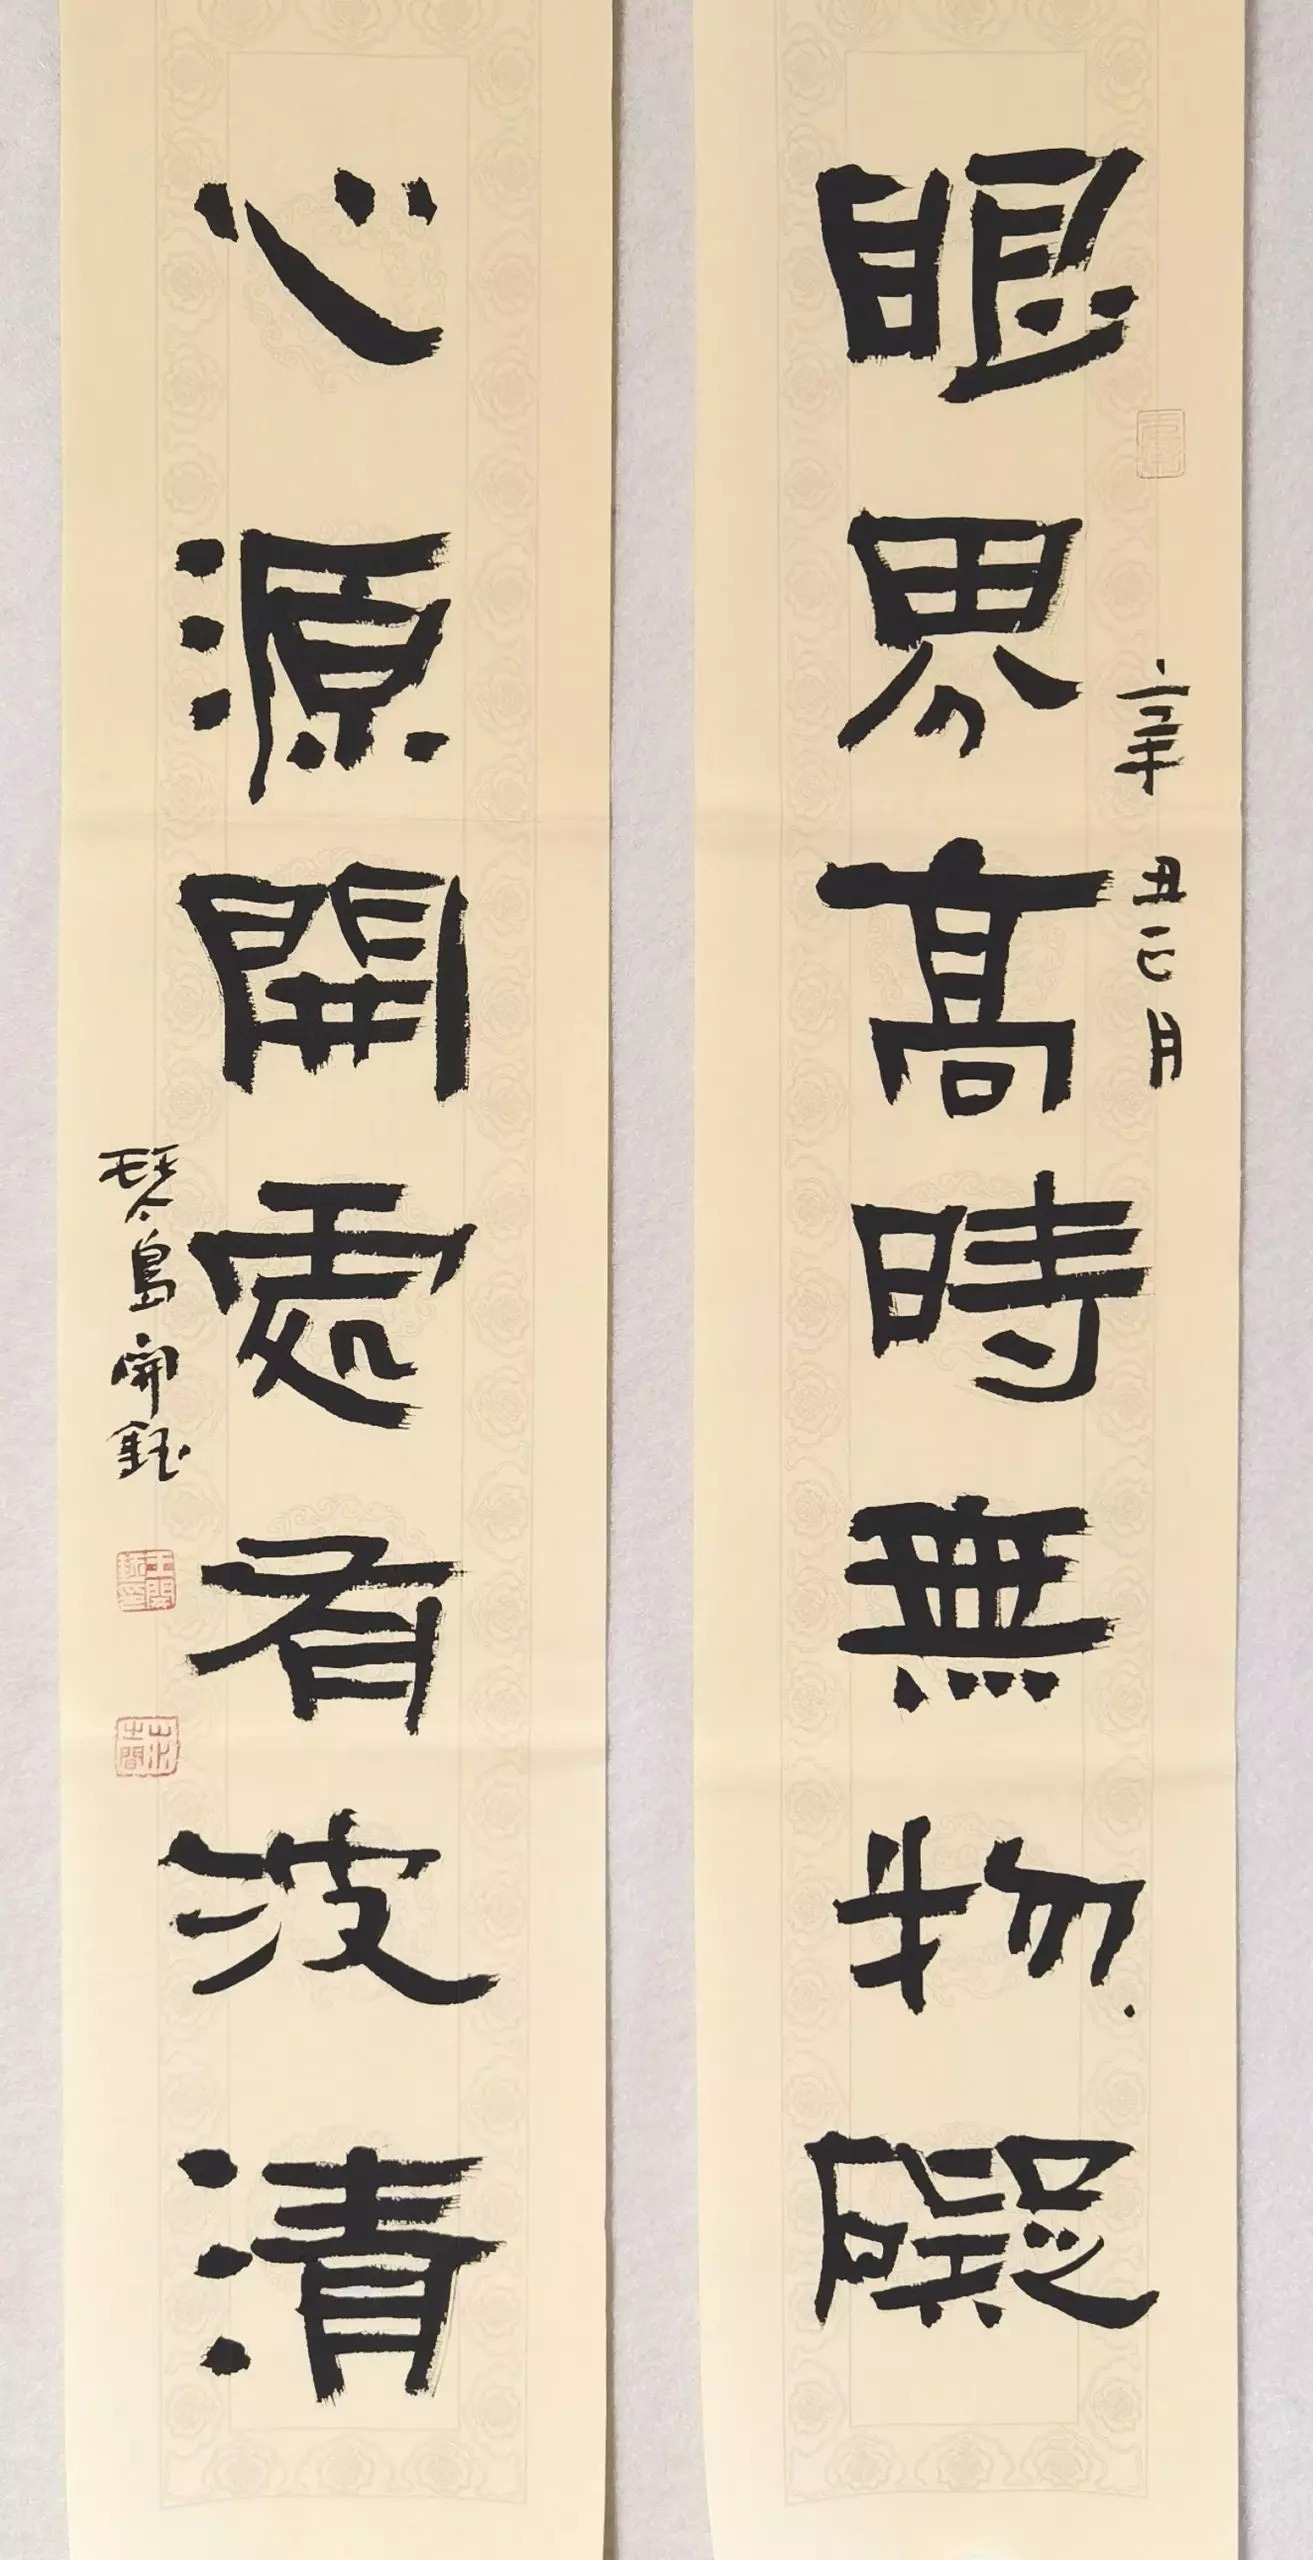 眼界高時無物礙
辛丑正月
心源開處有波清
琴島開鈺